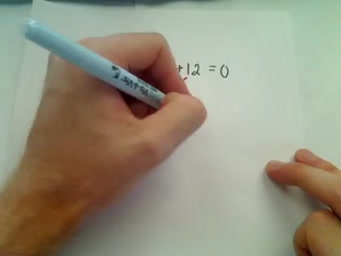 +12 = 0